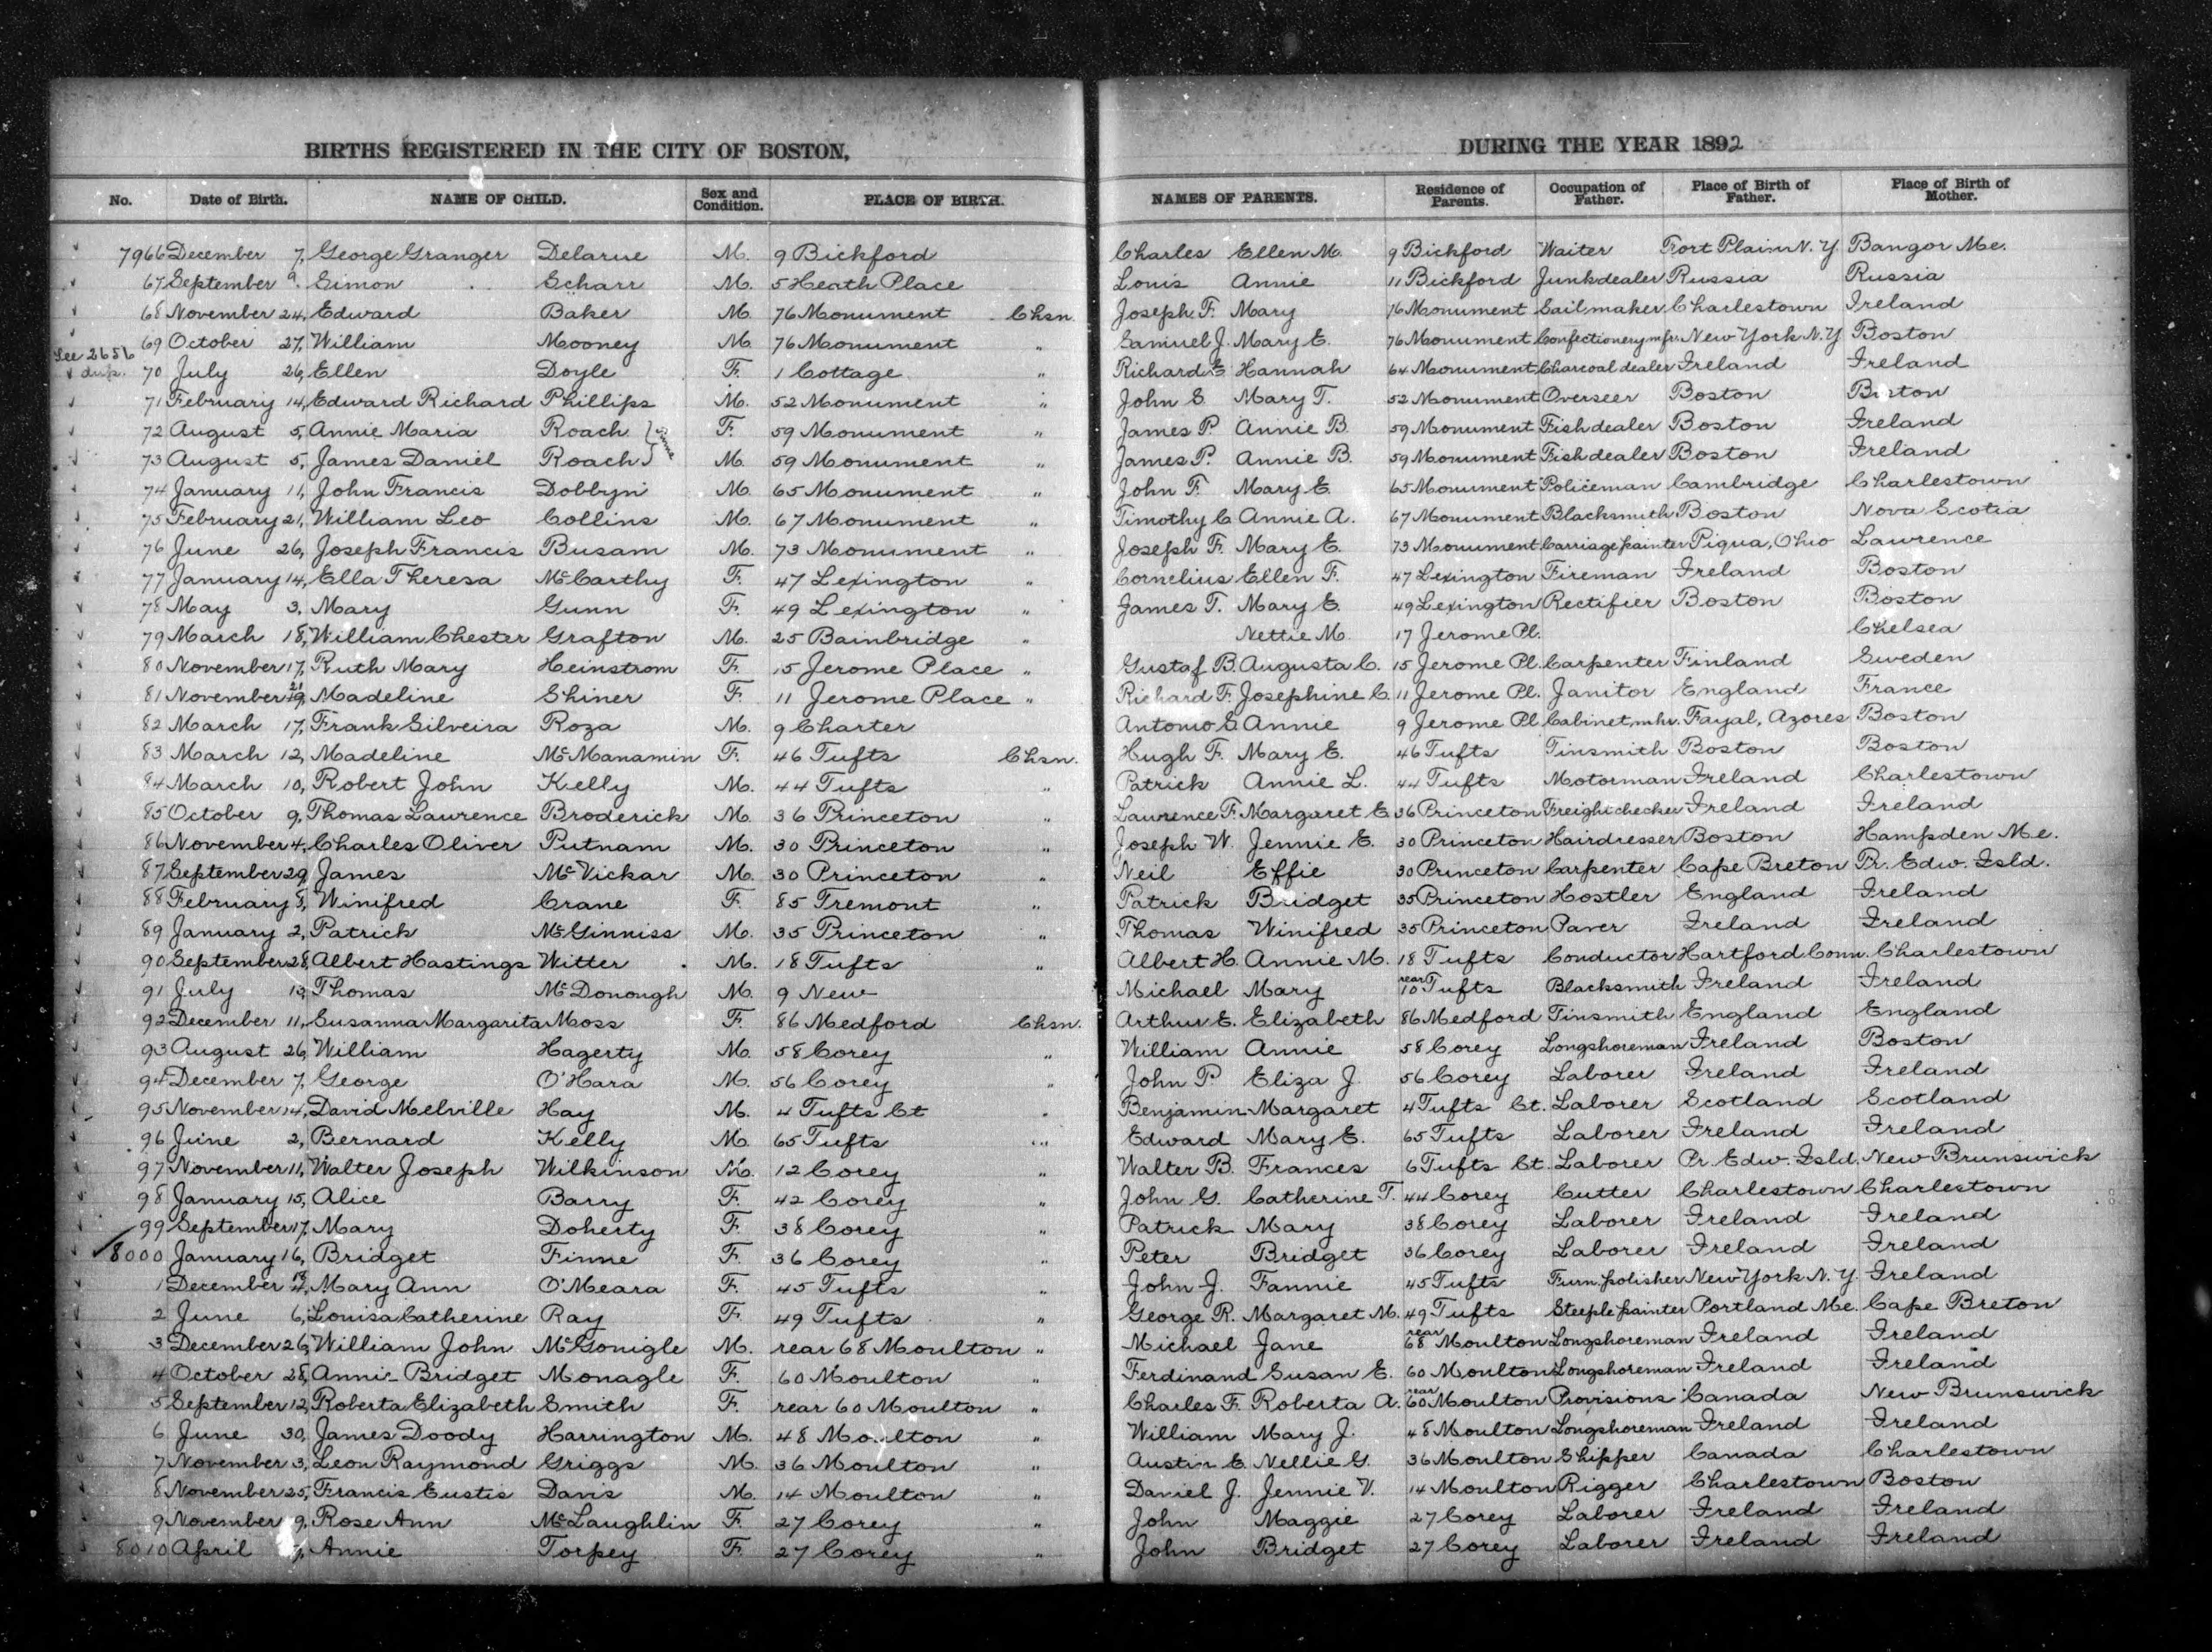 BIRTHS REGISTERED IN THE CITY OF BOSTON, DURING THE YEAR 1892
No. Date of Birth. NAME OF CHILD. Sex and Condition. PLACE OF BIRTH. NAMES OF PARENTS. Residence of Parents. Occupation of Father. Place of Birth of Father. Place of Birth of Mother.
7966 December 7, George Granger Delarue M. 9 Bickford Charles Ellen M. 9 Bickford Waiter Fort Plain N.Y. Bangor Me.
67 September 9, Simon Scharr M. 5 Heath Place Louis Annie 11 Bickford Junkdealer Russia Russia
68 November 24, Edward Baker M. 76 Monument Chsn. Joseph F. Mary 76 Monument Sailmaker Charlestown Ireland
69 October 27, William Mooney M. 76 Monument " Samuel J. Mary E. 76 Monument Confectionery mfr. New York N.Y. Boston
See 2656 dup. 70 July 26, Ellen Doyle F. 1 Cottage " Richard E Hannah 64 Monument Charcoal dealer Ireland Ireland
71 February 14, Edward Richard Phillips M. 52 Monument " John S. Mary T. 52 Monument Overseer Boston Boston
72 August 5, Annie Maria Roach F. 59 Monument " James P. Annie B. 59 Monument Fish dealer Boston Ireland
73 August 5, James Daniel Roach M. 59 Monument " James P. Annie B. 59 Monument Fish dealer Boston Ireland
74 January 11, John Francis Dobbyn M. 65 Monument " John F. Mary E. 65 Monument Policeman Cambridge Charlestown
75 February 21, William Leo Collins M. 67 Monument " Timothy C. Annie A. 67 Monument Blacksmith Boston Nova Scotia
76 June 26, Joseph Francis Busam M. 73 Monument " Joseph F. Mary E. 73 Monument Carriage painter Piqua, Ohio Lawrence
77 January 14, Ella Theresa McCarthy F. 47 Lexington " Cornelius Ellen F. 47 Lexington Fireman Ireland Boston
78 May 3, Mary Gunn F. 49 Lexington " James T. Mary E. 49 Lexington Rectifier Boston Boston
79 March 18, William Chester Grafton M. 25 Bainbridge " Nettie M. 17 Jerome Pl. Chelsea
80 November 17, Ruth Mary Heinstrom F. 15 Jerome Place " Gustaf B. Augusta C. 15 Jerome Pl. Carpenter Finland Sweden
81 November 21 Madeline Shiner F. 11 Jerome Place " Richard F. Josephine C. 11 Jerome Pl. Janitor England France
82 March 17, Frank Silveira Roza M. 9 Charter Antonio S Annie 9 Jerome Pl. Cabinet mkr. Fayal, Azores Boston
83 March 12, Madeline McManamin F. 46 Tufts Chsn. Hugh F. Mary E. 46 Tufts Tinsmith Boston Boston
84 March 10, Robert John Kelly M. 44 Tufts " Patrick Annie L. 44 Tufts Motorman Ireland Charlestown
85 October 9, Thomas Lawrence Broderick M. 36 Princeton " Lawrence F. Margaret E 36 Princeton Freight checker Ireland Ireland
86 November 4, Charles Oliver Putnam M. 30 Princeton " Joseph W. Jennie E. 30 Princeton Hairdresser Boston Hampden Me.
87 September 29, James McVickar M. 30 Princeton " Neil Effie 30 Princeton Carpenter Cape Breton Pr. Edw. Isld.
88 February 8, Winifred Crane F. 85 Tremont " Patrick Bridget 35 Princeton Hostler England Ireland
89 January 2, Patrick McGinniss M. 35 Princeton " Thomas Winifred 35 Princeton Paver Ireland Ireland
90 September 28, Albert Hastings Witter M. 18 Tufts " Albert H. Annie M. 18 Tufts Conductor Hartford Conn. Charlestown
91 July Thomas McDonough M. 9 New Michael Mary rear 10 Tufts Blacksmith Ireland Ireland
92 December 11, Susanna Margarita Moss F. 86 Medford Chsn. Arthur E. Elizabeth 86 Medford Tinsmith England England
93 August 26, William Hagerty M. 58 Corey " William Annie 58 Corey Longshoreman Ireland Boston
94 December 7, George O'Hara M. 56 Corey " John P. Eliza J. 56 Corey Laborer Ireland Ireland
95 November 14, David Melville Hay M. 4 Tufts Ct " Benjamin Margaret 4 Tufts Ct. Laborer Scotland Scotland
96 June 2, Bernard Kelly M. 65 Tufts " Edward Mary E. 65 Tufts Laborer Ireland Ireland
97 November 11, Walter Joseph Wilkinson M. 12 Corey " Walter B. Frances 6 Tufts Ct. Laborer Pr. Edw. Isld. New Brunswick
98 January 15, Alice Barry F. 42 Corey " John G. Catherine T. 44 Corey Cutter Charlestown Charlestown
99 September 17, Mary Doherty F. 38 Corey " Patrick Mary 38 Corey Laborer Ireland Ireland
8000 January 16, Bridget Finne F. 36 Corey " Peter Bridget 36 Corey Laborer Ireland Ireland
1 December Mary Ann O'Meara F. 45 Tufts " John J. Fannie 45 Tufts Furn. polisher New York N.Y. Ireland
2 June 6, Louisa Catherine Ray F. 49 Tufts " George R. Margaret M. 49 Tufts Steeple painter Portland Me. Cape Breton
3 December 26, William John McGonigle M. rear 68 Moulton " Michael Jane rear 68 Moulton Longshoreman Ireland Ireland
4 October 28, Annie Bridget Monagle F. 60 Moulton " Ferdinand Susan E. 60 Moulton Longshoreman Ireland Ireland
5 September 12, Roberta Elizabeth Smith F. rear 60 Moulton " Charles F. Roberta A. rear 60 Moulton Provisions Canada New Brunswick
6 June 30, James Doody Harrington M. 48 Moulton " William Mary J. 48 Moulton Longshoreman Ireland Ireland
7 November 3, Leon Raymond Griggs M. 36 Moulton " Austin E. Nellie G. 36 Moulton Shipper Canada Charlestown
8 November 25, Francis Eustis Davis M. 14 Moulton " Daniel J. Jennie V. 14 Moulton Rigger Charlestown Boston
9 November 9, Rose Ann McLaughlin F. 27 Corey " John Maggie 27 Corey Laborer Ireland Ireland
8010 April Annie Torpey F. 27 Corey " John Bridget 27 Corey Laborer Ireland Ireland